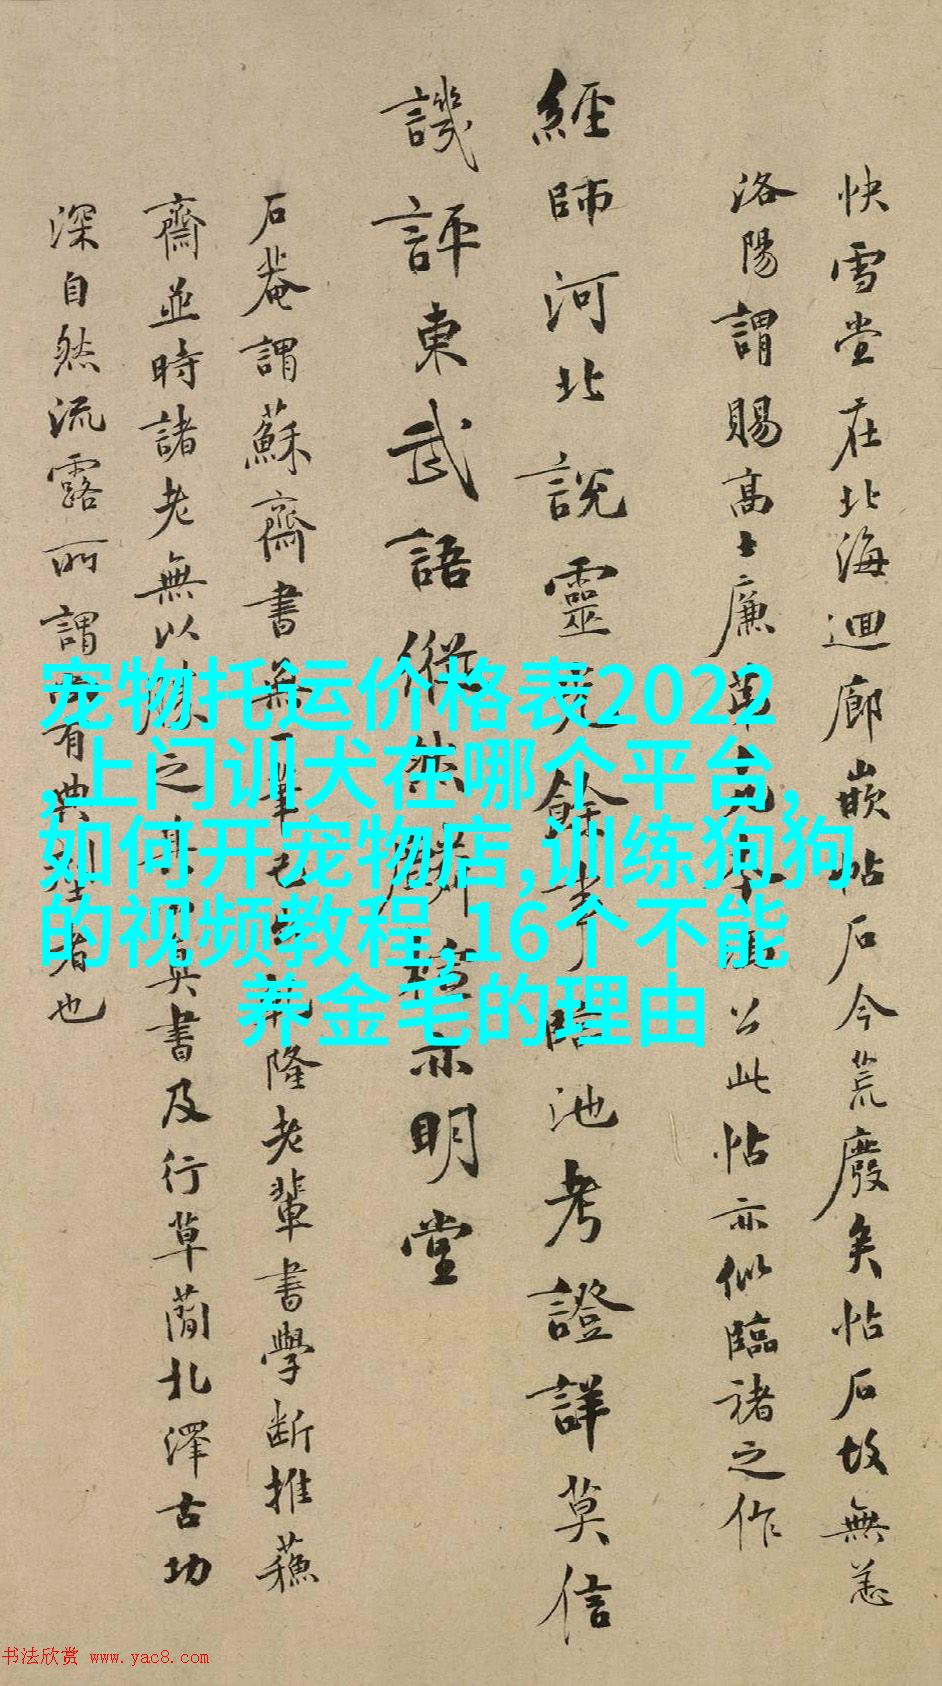 快雪堂在北海迴廊嵌帖石今荒廢矣帖石故無恙
洛陽謂賜高士廉
公此帖亦似臨諸之作
經師河北說靈
餘事臨池考證詳莫信
譏評東武語
亦明堂
石菴謂蘇齋書無一筆
隆老輩書學斷推蘇
齋並時諸老無以
之其真書及行草蘭北澤古功
深自然流露所謂有典型者也
宠物托运价格表2022
,上门训犬在哪个平台,
如何开宠物店,训练狗狗
的视频教程,16个不能
养金毛的理由
书法欣赏 www.yac8.com